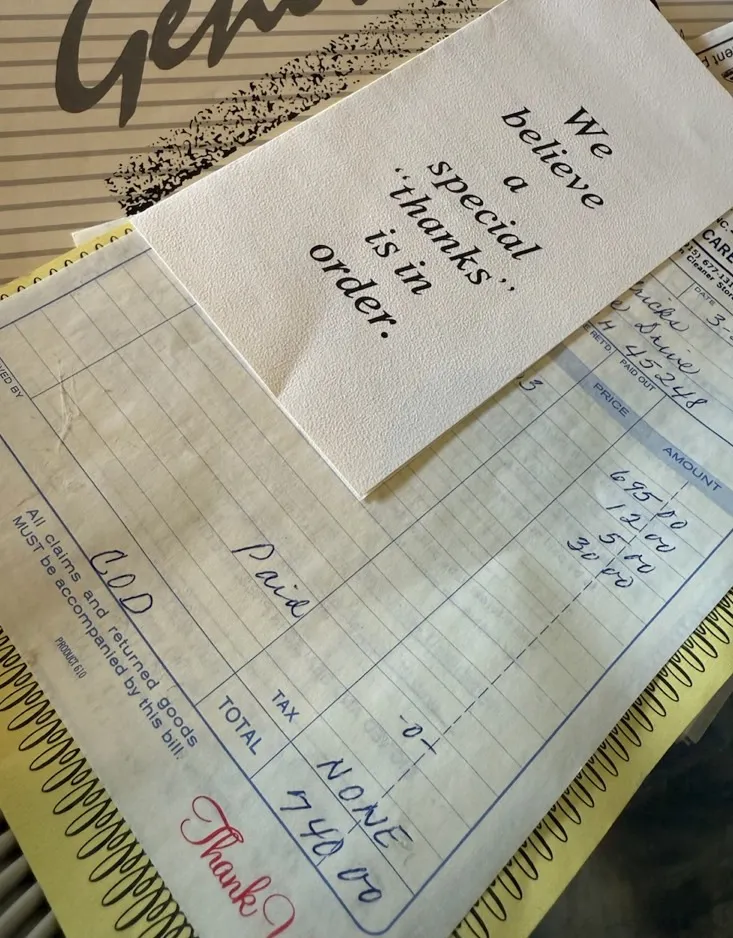 We
believe
a
special
"thanks"
is in
order.
CARE
Cleaner Stor
DATE 3-
Drive
45248
RET'D. PAID OUT
PRICE AMOUNT
695 00
12 00
5 00
30 00
Paid
COD
TAX -0-
NONE
TOTAL 740 00
All claims and returned goods
MUST be accompanied by this bill.
PRODUCT 610
Thank